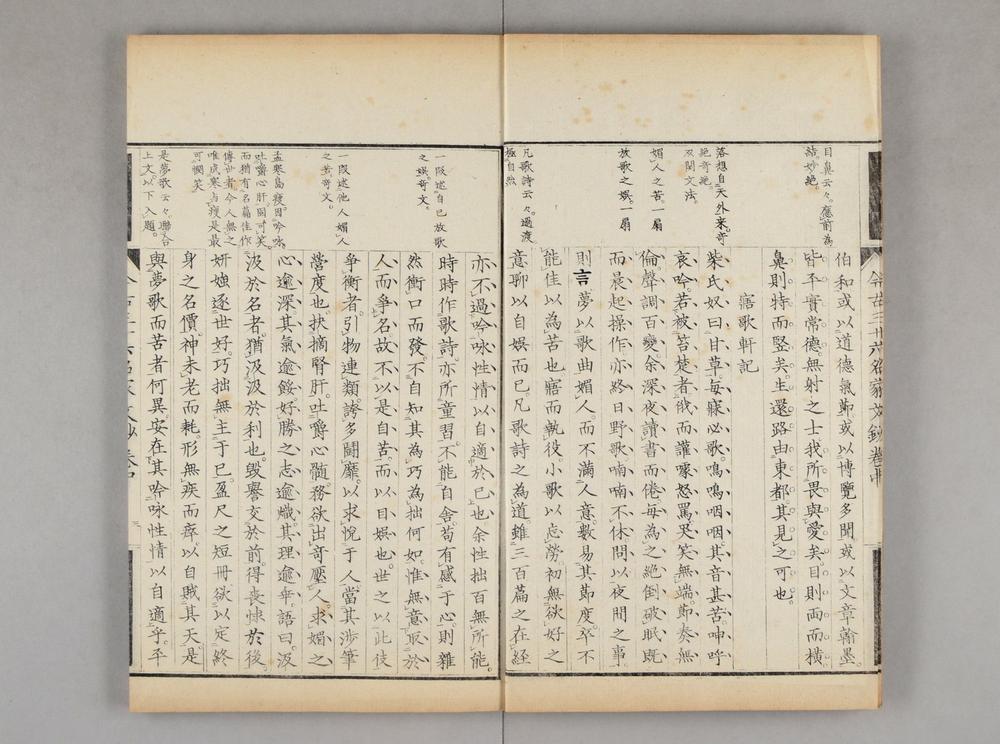 目鼻云々。應前為
結妙絶
落想自天外來。奇
絶奇絶。
双関文法。
媚人之苦。一扇
放歌之娯。一扇
凡歌詩云々。過渡
極自然
伯和或以道德氣節或以博覽多聞或以文章翰墨
皆平實常德。無射之士我所畏與愛矣。目則両而橫
鼻則特而竪矣。生還路由東都。其見之可也。
寤歌軒記
柴氏奴曰甘草。每寐必歌。鳴鳴咽咽。其音甚苦。呻呼
哀吟。若被笞楚者。俄而讙嚎怒罵。哭笑無端。節奏無
倫。聲調百變。余深夜讀書而倦。每為之絶倒破眠。既
而晨起操作。亦終日野歌喃喃不休。問以夜間之事。
則言。夢以歌曲媚人。而不滿人意。數易其節度。卒不
能佳。以為苦也。寤而執役。小歌以忘勞。初無欲好之
意。聊以自娯而已。凡歌詩之為道。雖三百篇之在經
一段述自已放歌
之娯。奇文。
一段述他人媚人
之苦。奇文。
孟寒島瘦。因吟咏
吐嚼心肝。固可笑。
而猶有名篇佳作
傳世者。今人無之
唯虎寒与瘦。是最
可憫笑
是夢歌云々。聯合
上文。以下入題。
亦不過吟咏性情以自適於已也。余性拙百無所能。
時時作歌詩。亦所童習。不能自舍。苟有感于心。則雜
然衝口而發。不自知其為巧為拙何如。惟無意取於
人而爭名。故不以是自苦。而以自娯也。世之以此伎
爭衡者。引物連類。誇多鬪靡。以求悅于人。當其涉筆
營度也。抉摘腎肝。吐嚼心髓。務欲出奇壓人。求媚之
心逾深。其氣逾餒。好勝之志逾熾。其理逾舛。語曰。汲
汲於名者。猶汲汲於利也。毀譽交於前。得喪悚於後。
妍媸逐世好。巧拙無主于已。盈尺之短冊。欲以定終
身之名價。神未老而耗。形無疾而瘁。以自賊其天。是
與夢歌而苦者何異。安在其吟咏性情以自適乎。平